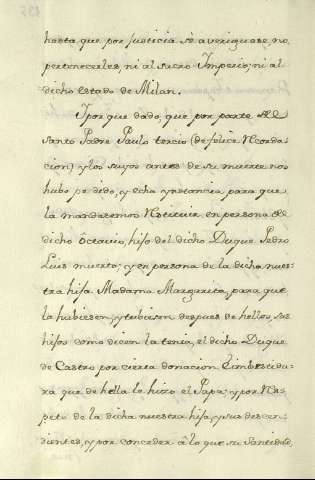 hasta que por Justicia se averiguase, no
pertenecerles, ni al sacro Imperio; ni al
dicho estado de Milan.
Y por que dado, que por parte del
Santo Padre Paulo tercio (de felice Recorda-
cion) y los suyos antes de su muerte nos
hubo pedido, y echa ynstancia para que
la mandasemos Restituir en persona del
dicho Octavio, hijo del dicho Duque Pedro
Luis muerto; y en persona de la dicha nues-
tra hija Madama Margarita, para que
la hubiesen, y tubiesen despues de hellos sus
hijos como dicen la tenia, el dicho Duque
de Castro por cierta donacion E imbestidu-
ra que de hella le hizo el Papa; y por Res-
peto de la dicha nuestra hija, y sus descen-
dientes, y por conceder â lo que su Santidad,